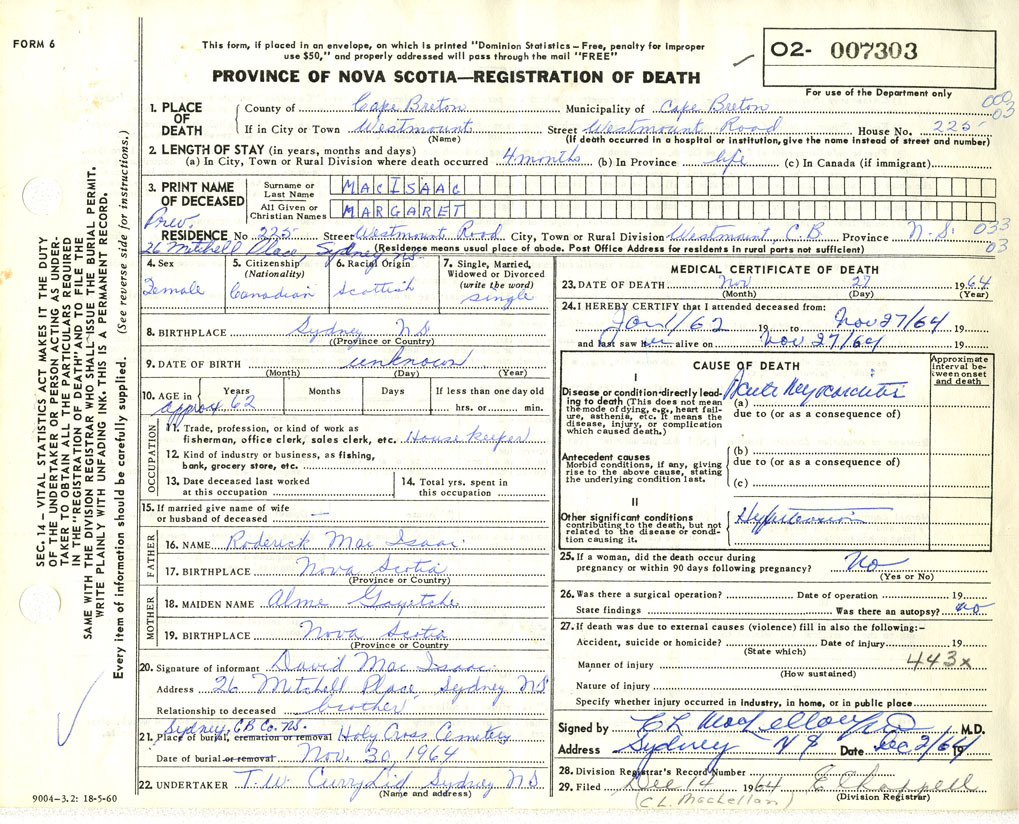 FORM 6
This form, if placed in an envelope, on which is printed "Dominion Statistics—Free, penalty for improper
use $50," and properly addressed will pass through the mail "FREE"
PROVINCE OF NOVA SCOTIA—REGISTRATION OF DEATH
O2- 007303
For use of the Department only
000
03
1. PLACE OF DEATH
County of Cape Breton Municipality of Cape Breton
If in City or Town Westmount Street Westmount Road House No. 225
(Name) (If death occurred in a hospital or institution, give the name instead of street and number)
2. LENGTH OF STAY (in years, months and days)
(a) In City, Town or Rural Division where death occurred 4 months (b) In Province life (c) In Canada (if immigrant)
3. PRINT NAME OF DECEASED
Surname or Last Name MACISAAC
All Given or Christian Names MARGARET
Prev.
RESIDENCE No 225 Street Westmount Road City, Town or Rural Division Westmount, C.B. Province N.S. 033
03
26 Mitchell Place, Sydney NS (Residence means usual place of abode. Post Office Address for residents in rural parts not sufficient)
4. Sex Female
5. Citizenship (Nationality) Canadian
6. Racial Origin Scottish
7. Single, Married, Widowed or Divorced (write the word) single
8. BIRTHPLACE Sydney NS
(Province or Country)
9. DATE OF BIRTH unknown
(Month) (Day) (Year)
10. AGE in Years Months Days If less than one day old
approx 62 hrs. or min.
OCCUPATION
11. Trade, profession, or kind of work as
fisherman, office clerk, sales clerk, etc. House keeper
12. Kind of industry or business, as fishing,
bank, grocery store, etc.
13. Date deceased last worked
at this occupation
14. Total yrs. spent in
this occupation
15. If married give name of wife
or husband of deceased —
FATHER
16. NAME Roderick Mac Isaac
17. BIRTHPLACE Nova Scotia
(Province or Country)
MOTHER
18. MAIDEN NAME Alme
19. BIRTHPLACE Nova Scotia
(Province or Country)
20. Signature of informant David Mac Isaac
Address 26 Mitchell Place, Sydney NS
Relationship to deceased brother
Sydney, CB Co. NS.
21. Place of burial, cremation or removal Holy Cross Cemetery
Date of burial or removal Nov. 30, 1964
22. UNDERTAKER T.W. Curry Ltd Sydney NS
(Name and address)
MEDICAL CERTIFICATE OF DEATH
23. DATE OF DEATH Nov 27 1964
(Month) (Day) (Year)
24. I HEREBY CERTIFY that I attended deceased from:
Jan 1/62 19 to Nov 27/64 19
and last saw her alive on Nov 27/64 19
CAUSE OF DEATH
Approximate interval between onset and death
I
Disease or condition directly leading to death (This does not mean the mode of dying, e.g., heart failure, asthenia, etc. It means the disease, injury, or complication which caused death.)
(a) Acute
due to (or as a consequence of)
Antecedent causes
Morbid conditions, if any, giving rise to the above cause, stating the underlying condition last.
(b)
due to (or as a consequence of)
(c)
II
Other significant conditions contributing to the death, but not related to the disease or condition causing it.
Hypertension
25. If a woman, did the death occur during
pregnancy or within 90 days following pregnancy? No
(Yes or No)
26. Was there a surgical operation? Date of operation 19
State findings Was there an autopsy? no
27. If death was due to external causes (violence) fill in also the following:—
Accident, suicide or homicide? Date of injury 19
(State which) 443x
Manner of injury
(How sustained)
Nature of injury
Specify whether injury occurred in industry, in home, or in public place
Signed by C L MacLellan M.D.
Address Sydney N S Date Dec 2/64 19
28. Division Registrar's Record Number
29. Filed Dec 14 1964 E Chappell
(C.L. MacLellan) (Division Registrar)
SEC. 14—VITAL STATISTICS ACT MAKES IT THE DUTY
OF THE UNDERTAKER OR PERSON ACTING AS UNDER-
TAKER TO OBTAIN ALL THE PARTICULARS REQUIRED
IN THE "REGISTRATION OF DEATH" AND TO FILE THE
SAME WITH THE DIVISION REGISTRAR WHO SHALL ISSUE THE BURIAL PERMIT.
WRITE PLAINLY WITH UNFADING INK. THIS IS A PERMANENT RECORD.
Every item of information should be carefully supplied. (See reverse side for instructions.)
9004-3.2: 18-5-60